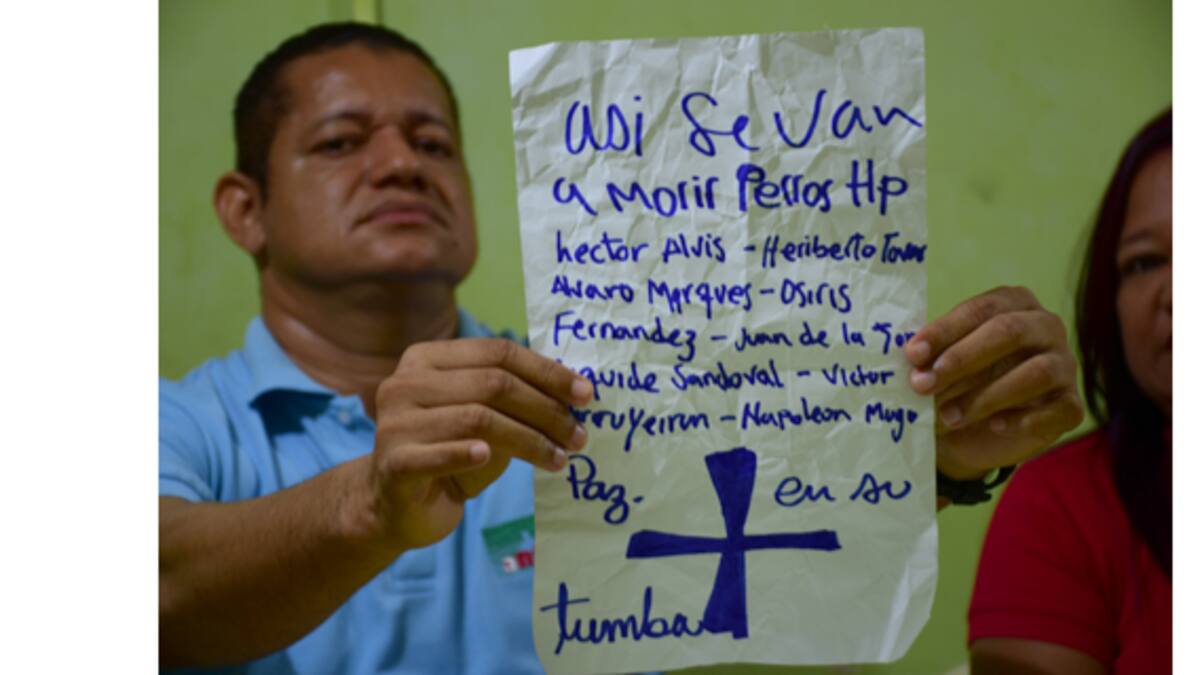 asi se van
a morir Perros Hp
hector Alvis - Heriberto Tovar
Alvaro Marques - Osiris
Fernandez - Juan de la
Sandoval - Victor
Yeirun - Napoleon Mugo
Paz. en su
tumba